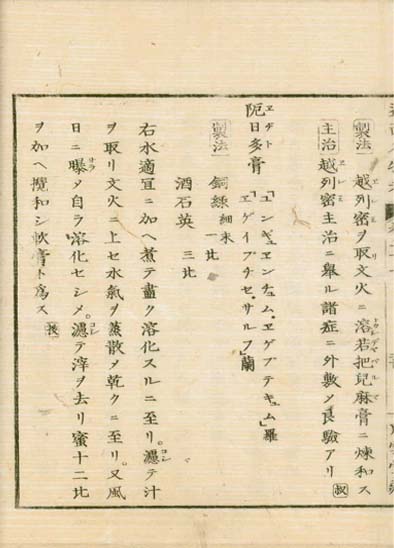 製法 越列密ヲ取文火ニ溶若把兒麻膏ニ煉和ス
主治 越列密主治ニ舉ル諸症ニ外敷メ良驗アリ 叔
阨日多膏 「ユンギュエンチュム・エゲプテキュム」羅
「エゲイプチセ・サルフ」蘭
製法 銅綠 細末 一比
酒石英 三比
右水適宜ニ加ヘ煮テ盡ク溶化スルニ至リ。濾テ汁
ヲ取リ文火ニ上セ水氣ヲ蒸散メ乾クニ至リ。又風
日ニ曝メ自ラ溶化セシメ。濾テ滓ヲ去リ蜜十二比
ヲ加ヘ攪和シ軟膏ト爲ス 扶